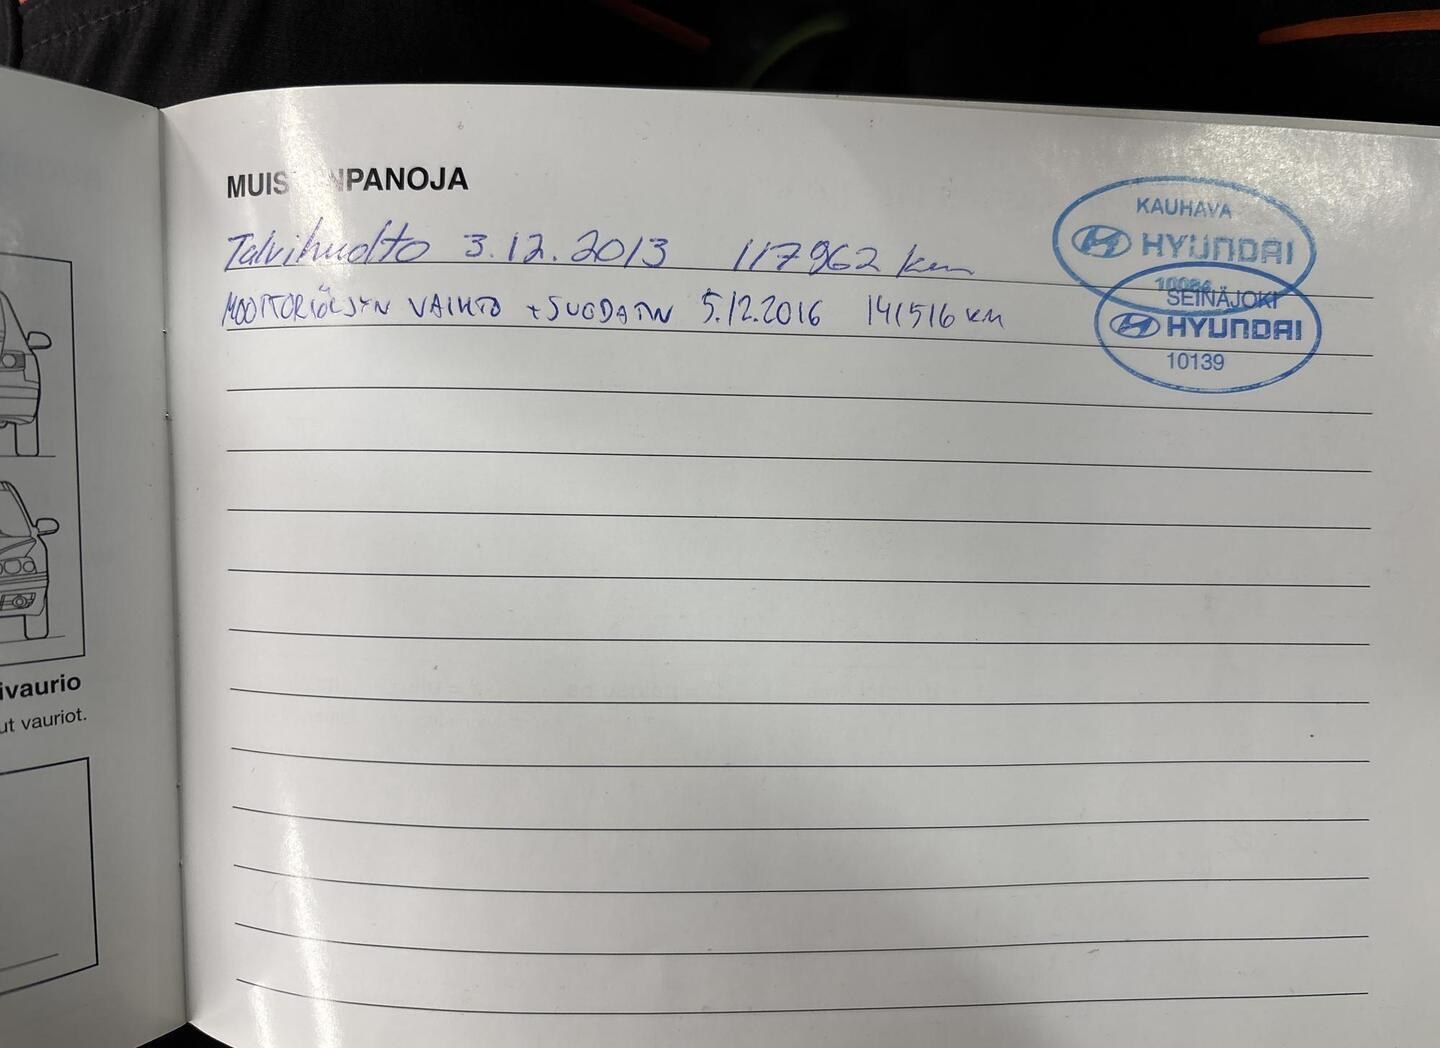 MUISTIINPANOJA
Talvihuolto 3.12.2013 117962 km
MOOTTORIÖLJYN VAIHTO + SUODATIN 5.12.2016 141516 KM
KAUHAVA
HYUNDAI
SEINÄJOKI
HYUNDAI
10139
ivaurio
ut vauriot.